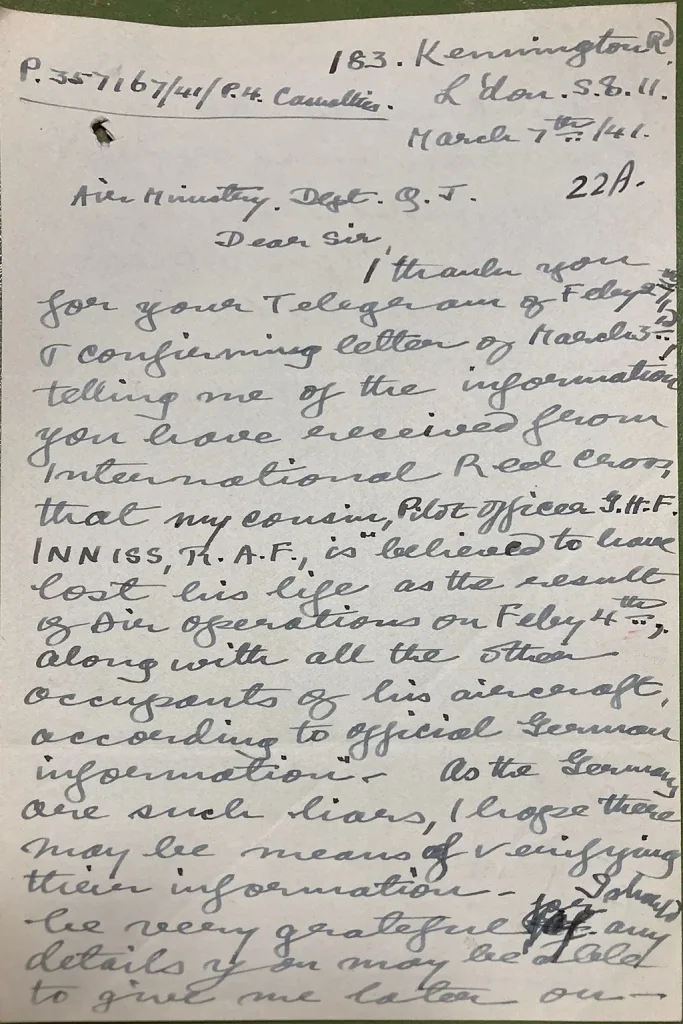 183. Kennington Rd
P. 357167/41/P.4. Casualties.
L'don. S.E. 11.
March 7th/41.
22A.
Air Ministry. Dept. Q.J.
Dear Sir,
I thank you
for your Telegram of Feby
& confirming letter of March 3rd,
telling me of the information
you have received from
International Red Cross,
that my cousin, Pilot officer G.H.F.
INNISS, R.A.F., is "believed to have
lost his life as the result
of Air operations on Feby 4th,
along with all the other
occupants of his aircraft,
according to official German
information" - As the Germans
are such liars, I hope there
may be means of verifying
their information - I should
be very grateful for any
details you may be able
to give me later on -